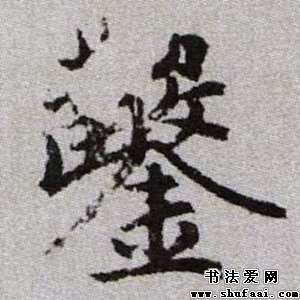 鑿
书法爱网
www.shufaai.com